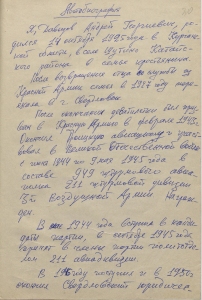 Автобиография
Я, Давыдов Андрей Георгиевич, ро-
дился 27 октября 1925 года в Курган-
ской области, в селе
района в семье крестьянина.
После возвращения отца со службы из
Красной Армии семья в 1927 году пере-
ехала в г. Свердловск.
После окончания десятилетки был призван
в Красную Армию в феврале 1943.
Окончил авиашколу и участ-
вовал в Великой Отечественной войне
с июня 1944 по 9 мая 1945 года в
составе 949 штурмового авиа-
полка 211 штурмовой дивизии
3й Воздушной Армии
ден.
В 1944 году вступил в канди-
даты партии, в ноябре 1945 года
принят в члены партии
211 авиадивизии.
В 1946 году поступил и в 1950г.
окончил Свердловский юридичес-